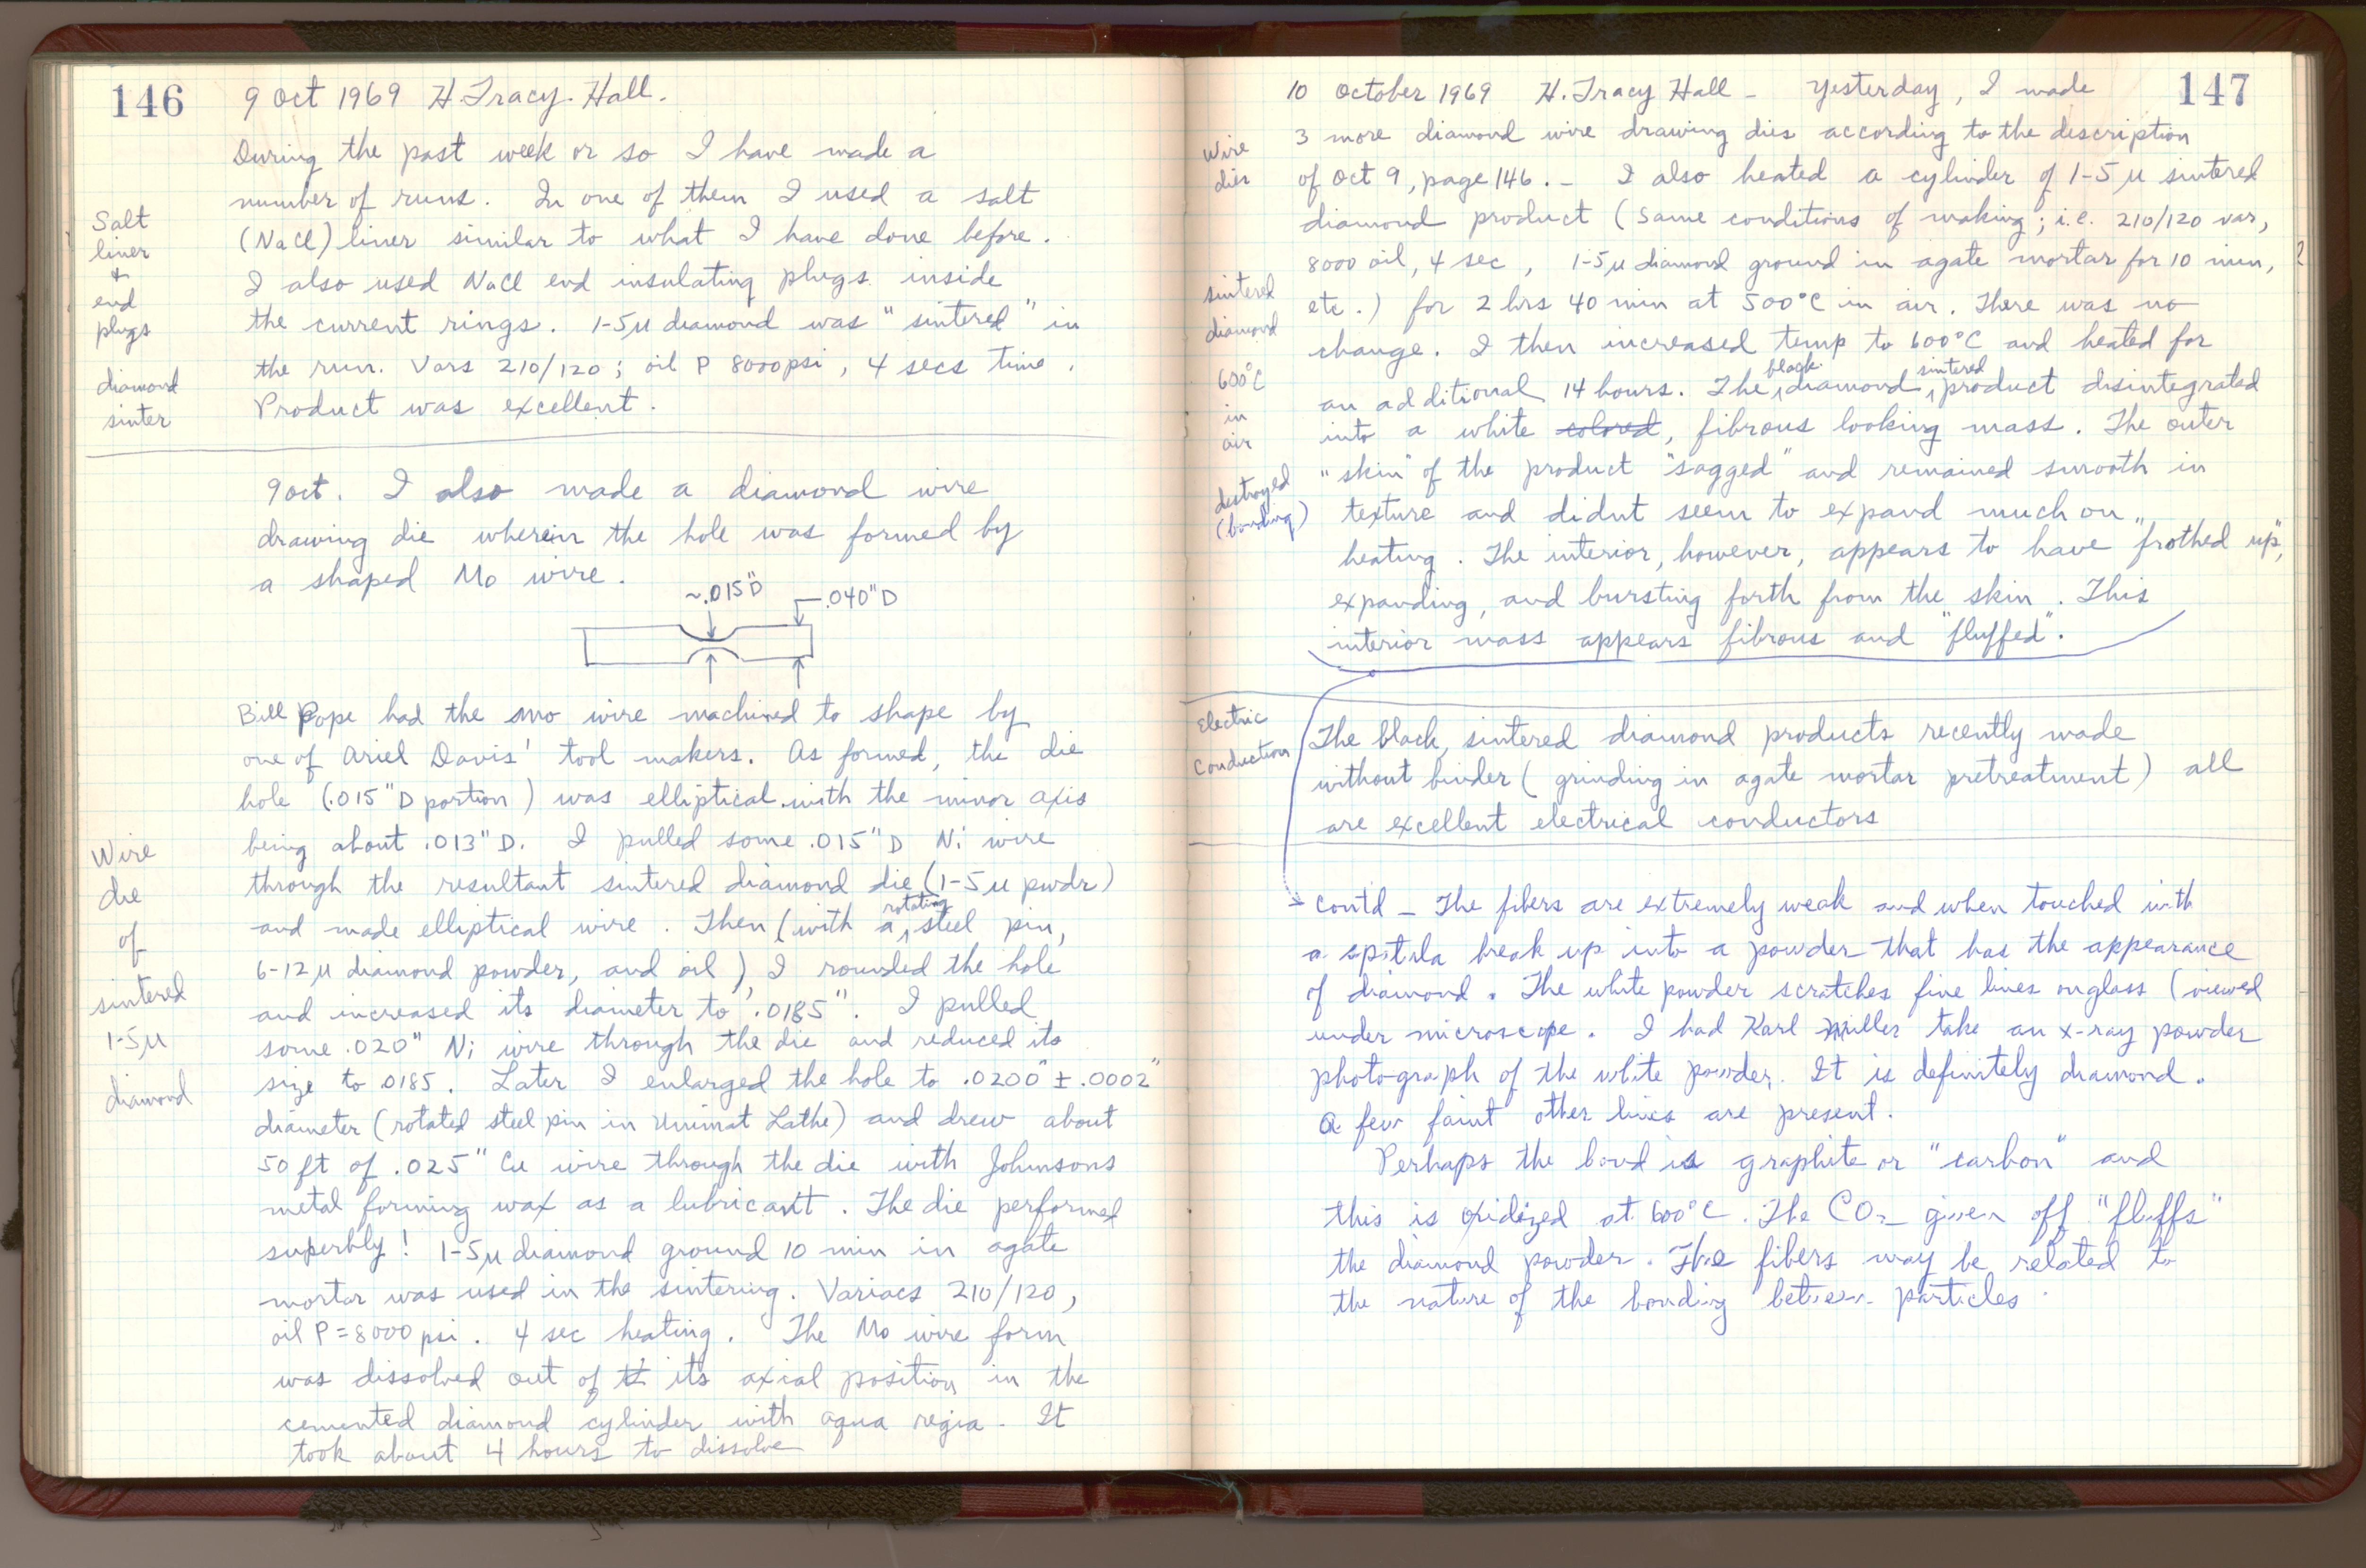 146
9 Oct 1969 H. Tracy Hall.
During the past week or so I have made a
number of runs. In one of them I used a salt
(NaCl) liner similar to what I have done before.
I also used NaCl end insulating plugs inside
the current rings. 1-5μ diamond was "sintered" in
the run. Vars 210/120; oil P 8000psi, 4 secs time.
Product was excellent.
Salt
liner
+
end
plugs
diamond
sinter
9 Oct. I also made a diamond wire
drawing die wherein the hole was formed by
a shaped Mo wire.
~.015"D
.040"D
Bill Pope had the Mo wire machined to shape by
one of Ariel Davis' tool makers. As formed, the die
hole (.015"D portion) was elliptical with the minor axis
being about .013"D. I pulled some .015"D Ni wire
through the resultant sintered diamond die (1-5μ pwdr)
and made elliptical wire. Then (with a rotating steel pin,
6-12μ diamond powder, and oil) I rounded the hole
and increased its diameter to .0185". I pulled
some .020" Ni wire through the die and reduced its
size to .0185. Later I enlarged the hole to .0200" ± .0002"
diameter (rotated steel pin in Unimat Lathe) and drew about
50 ft of .025" Cu wire through the die with Johnsons
metal forming wax as a lubricant. The die performed
superbly! 1-5μ diamond ground 10 min in agate
mortar was used in the sintering. Variacs 210/120,
oil P=8000 psi. 4 sec heating. The Mo wire form
was dissolved out of its axial position in the
cemented diamond cylinder with aqua regia. It
took about 4 hours to dissolve
Wire
die
of
sintered
1-5μ
diamond
147
10 October 1969 H. Tracy Hall - Yesterday, I made
3 more diamond wire drawing dies according to the description
of Oct 9, page 146. - I also heated a cylinder of 1-5μ sintered
diamond product (same conditions of making; i.e. 210/120 var,
8000 oil, 4 sec, 1-5μ diamond ground in agate mortar for 10 min, ?
etc.) for 2 hrs 40 min at 500°C in air. There was no
change. I then increased temp to 600°C and heated for
an additional 14 hours. The black diamond sintered product disintegrated
into a white colored, fibrous looking mass. The outer
"skin" of the product "sagged" and remained smooth in
texture and didnt seem to expand much on
heating. The interior, however, appears to have "frothed up",
expanding, and bursting forth from the skin. This
interior mass appears fibrous and "fluffed".
Wire
dies
sintered
diamond
600°C
in
air
destroyed
(bonding)
Electric
Conduction
The black, sintered diamond products recently made
without binder (grinding in agate mortar pretreatment) all
are excellent electrical conductors
contd - The fibers are extremely weak and when touched with
a spitula break up into a powder that has the appearance
of diamond. The white powder scratches fine lines on glass (viewed
under microscope. I had Karl Miller take an x-ray powder
photograph of the white powder. It is definitely diamond.
A few faint other lines are present.
Perhaps the bond is graphite or "carbon" and
this is oxidized at 600°C. The CO2 given off "fluffs"
the diamond powder. The fibers may be related to
the nature of the bonding between particles.